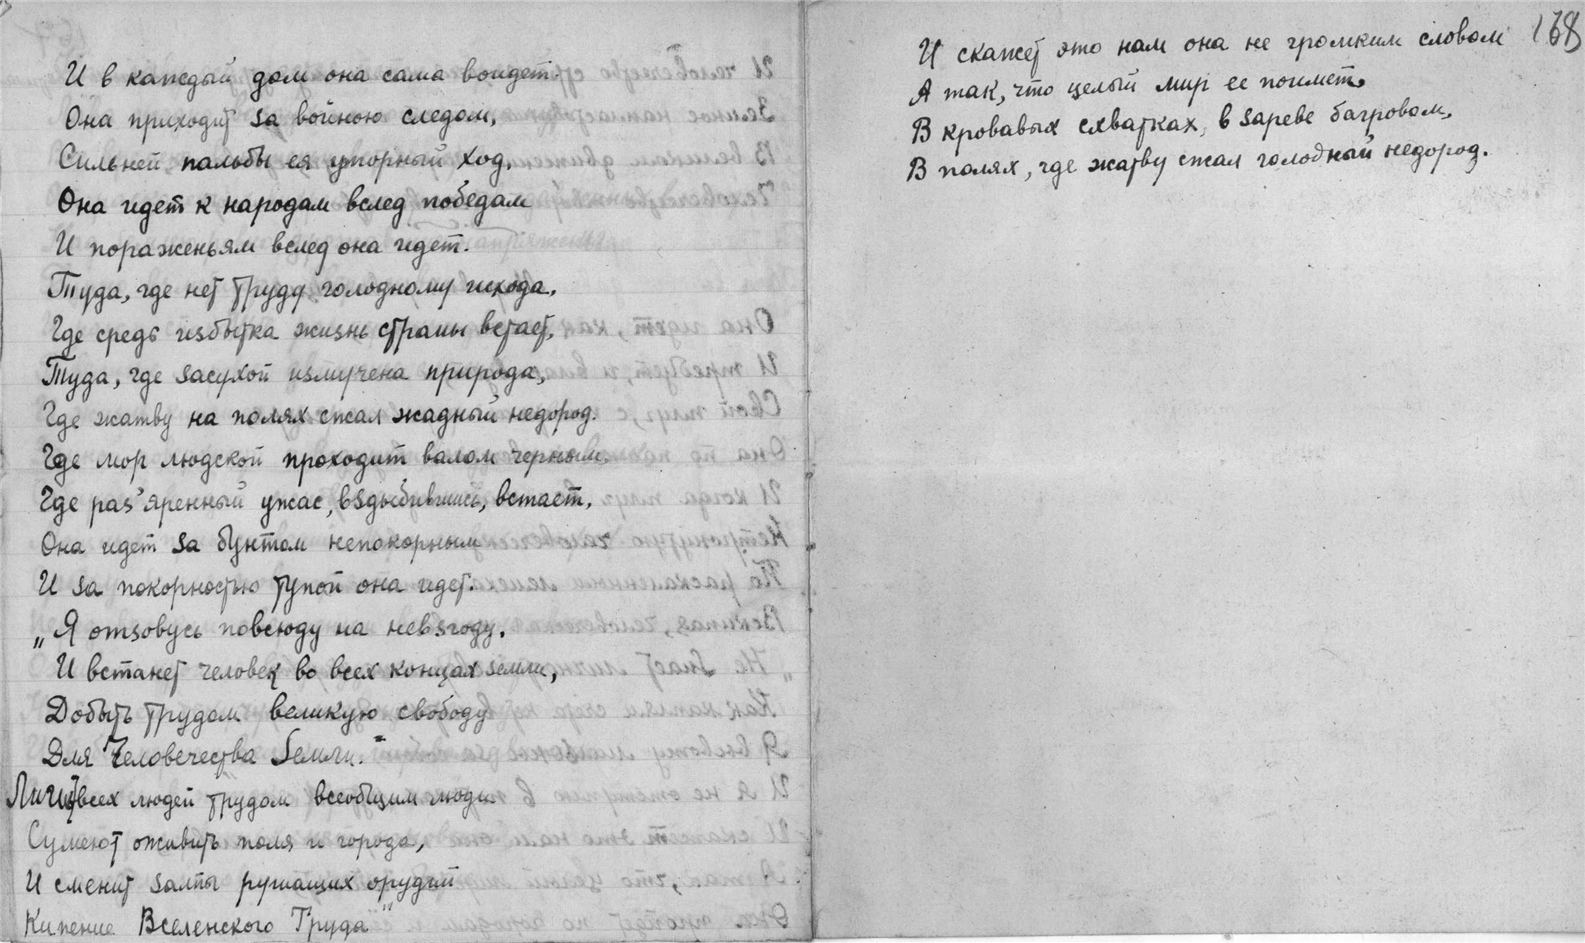 И в каждый дом она сама войдет.
Она приходит за войною следом,
Сильней пальбы ея упорный ход,
Она идет к народам вслед победам
И пораженьям вслед она идет.
Туда, где нет труду голодному исхода,
Где средь избытка жизнь страны встает,
Туда, где засухой измучена природа,
Где жатву на полях сжал жадный недород.
Где мор людской проходит валом черным,
Где раз'яренный ужас, вздыбившись, встает,
Она идет за бунтом непокорным
И за покорностью тупой она идет.
„Я отзовусь повсюду на невзгоду.
И встанет человек во всех концах земли,
Добыть трудом великую свободу
Для Человечества Земли."
Лишь всех людей трудом всеобщим люди
Сумеют оживить поля и города,
И сменит залпы рушащих орудий
Кипение Вселенского Труда"
168
И скажет это нам она не громким словом
А так, что целый мир ее поймет,
В кровавых схватках, в зареве багровом,
В полях, где жатву сжал голодный недород.